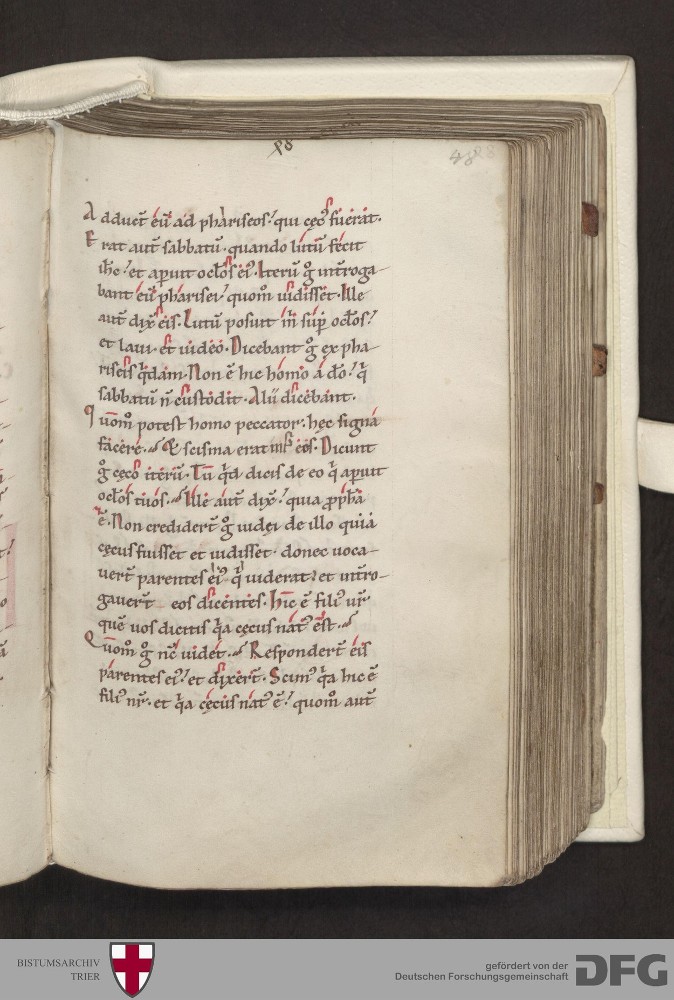 48
A dduct̄ eū ad phariseos. qui cęc᷒ fuerat.
E rat aut̄ sabbatū. quando lutū fecit
ih̄c. et aperuit oc̄los ei᷒. Iterū gͦ int̄roga-
bant eū pharisei. quom̊ uidisset. Ille
aut̄ dix̄ eis. Lutū posuit m̄ sup̄ oc̄los.
et laui. et uideo. Dicebant gͦ ex pha-
riseis q̇dam. Non ē hic homo a dō. q̇
sabbatū n̄ custodit. Alii dicebant.
Q uom̊ potest homo peccator. hęc signa
facere. Et scisma erat int̄ eos. Dicunt
gͦ cęco iterū. Tu q̇d dicis de eo q̇ aperuit
oc̄los tuos. Ille aut̄ dix̄. quia pp̄ha
ē. Non credidert̄ gͦ iudęi de illo quia
cęcus fuisset et uidisset. donec uoca-
uert̄ parentes ei᷒ q̇ uiderat. et int̄ro-
gauert̄ eos dicentes. Hic ē fili᷒ ur̄
quē uos dicitis q̇a cęcus nat᷒ est.
Q uom̊ gͦ nc̄ uidet. Respondert̄ eis
parentes ei᷒. et dixert̄. Scim᷒ q̇a hic ē
fili᷒ nr̄. et q̇a cęcus nat᷒ ē. quom̊ aut̄
BISTUMSARCHIV
TRIER
gefördert von der
Deutschen Forschungsgemeinschaft
DFG